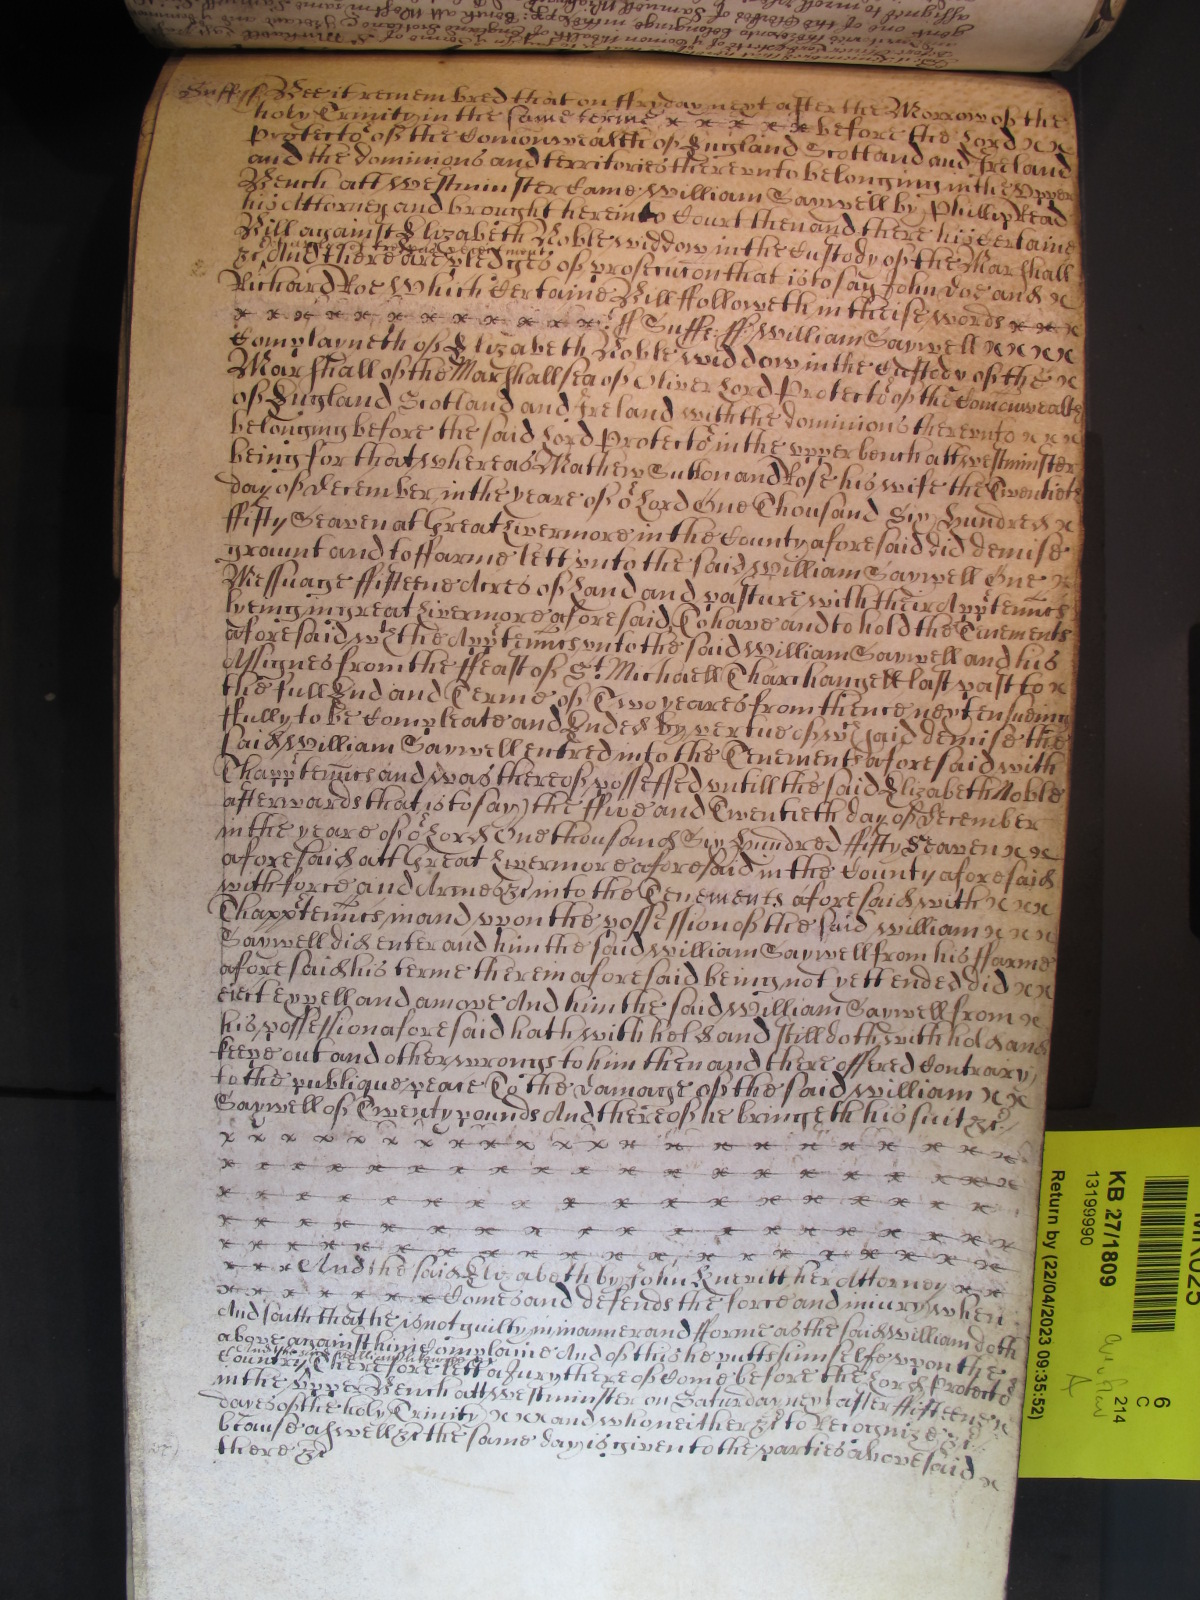 Suff ss Bee it remembred that on ffryday next after the Morrow of the
holy Trinity in the same terme x x x x x before the Lord x x
Protector of the Comonwealth of England Scotland and Ireland
and the dominions and territories therevnto belonging in the Vpper
Bench att Westminster Came William Saywell by Phillip Read
his Attorney and brought here into Court then and there his Certaine
Bill against Elizabeth Noble widdow in the Custody of the Marshall
&c And there are pledges of prosecucon that is to say John Doe and x
Richard Roe Which Certaine Bill ffolloweth in theise words x x x
x x x x x x x x x x x x : ss Suff: ss William Saywell x x x x
Complayneth of Elizabeth Noble widdow in the Custody of the x
Marshall of the Marshallsea of Oliver Lord Protector of the Comonwealth
of England Scotland and Ireland with the dominions therevnto x x x
belonging before the said Lord Protector in the vpper bench att westminster
being for that whereas Mathew Sutton and Rose his wife the Twentieth
day of December in the yeare of or Lord One Thousand Six Hundred x
ffifty Seaven at Great Livermore in the County aforesaid did demise
graunt and to ffarme lett vnto the said William Saywell One x
Messuage ffifteene Acres of Land and pasture with their Apptennces
lyeing in great Livermore aforesaid To have and to hold the Tenements
aforesaid wth the Apptennces vnto the said William Saywell and his
Assignes from the ffeast of St. Michaell Tharchangell last past to x
the full End and Terme of Two yeares from thence next ensueing
ffully to be Compleate and Ended by vertue of wch said demise the
said William Saywell entred into the Tenements aforesaid with
Thapptennces and was thereof possessed vntill the said Elizabeth Noble
afterwards that is to say) the ffive and Twentieth day of December
in the yeare of or Lord One thousand Six Hundred ffifty Seaven x x
aforesaid att Great Livermore aforesaid in the County aforesaid
with force and Armes &c into the Tenements aforesaid with x x x
Thapptennces in and vpon the possession of the said William x x x
Saywell did enter and him the said William Saywell from his ffarme
aforesaid his terme therein aforesaid being not yett ended did x x
eiect expell and amove And him the said William Saywell from x
his possession aforesaid hath withheld and still doth withhold and
keepe out and other wrongs to him then and there offered Contrary
to the publique peace To the damage of the said William x x
Saywell of Twenty pounds And thereof he bringeth his suit &c
x x x x x x x x x x x x x x x x x x x x x x x
x x x x x x x x x x x x x x x x x x x x
x x x x x x x x x x x x x x x x x
x x x x x x x x x x x x x x x x x x x
x x x x x x x x x x x x x x x x x x x
x x x And the said Elizabeth by John Knevitt her Attorney x x
x x x x x x x Comes and defends the force and iniury when
And saith that he is not guilty in manner and fforme as the said William doth
above against him Complaine And of this he putts himselfe vpon the
And the said William likewise &c
Country Therefore lett a Jury thereof Come before the Lord Protector
in the Vpper Bench att Westminster on Saturday next after ffifteene x
dayes of the holy Trinity x x x and who neither &c to recognize &c
because aswell &c the same day is given to the parties abovesaid x
there &c
KB 27/1809
13199990
Return by (22/04/2023 09:35:52)
6
C
214